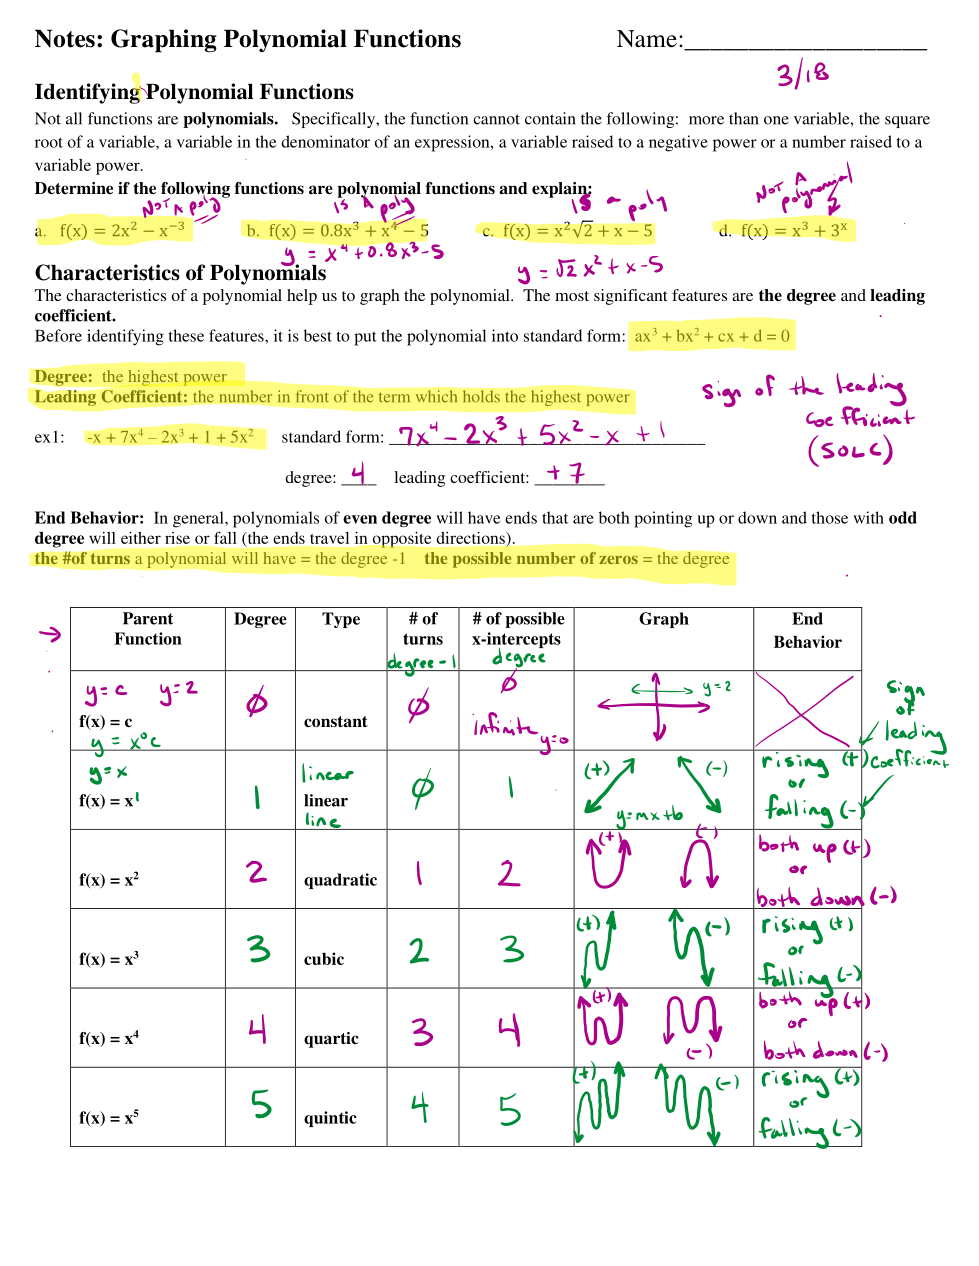 Notes: Graphing Polynomial Functions Name:___________________
3/18
Identifying Polynomial Functions
Not all functions are polynomials. Specifically, the function cannot contain the following: more than one variable, the square
root of a variable, a variable in the denominator of an expression, a variable raised to a negative power or a number raised to a
variable power.
Determine if the following functions are polynomial functions and explain:
NOT A poly IS A poly IS a poly NOT A polynomial
a. f(x) = 2x² − x⁻³ b. f(x) = 0.8x³ + x⁴ − 5 c. f(x) = x²√2 + x − 5 d. f(x) = x³ + 3ˣ
y = x⁴ + 0.8x³ - 5 y = √2 x² + x - 5
Characteristics of Polynomials
The characteristics of a polynomial help us to graph the polynomial. The most significant features are the degree and leading
coefficient.
Before identifying these features, it is best to put the polynomial into standard form: ax³ + bx² + cx + d = 0
Degree: the highest power
Leading Coefficient: the number in front of the term which holds the highest power
sign of the leading
coefficient
(SOLC)
ex1: -x + 7x⁴ – 2x³ + 1 + 5x² standard form: 7x⁴ - 2x³ + 5x² - x + 1
degree: 4 leading coefficient: +7
End Behavior: In general, polynomials of even degree will have ends that are both pointing up or down and those with odd
degree will either rise or fall (the ends travel in opposite directions).
the #of turns a polynomial will have = the degree -1 the possible number of zeros = the degree
→ Parent Degree Type # of # of possible Graph End
Function turns x-intercepts Behavior
degree - 1 degree
y = c y = 2 ∅ ∅ ∅ y = 2
f(x) = c constant infinite y=0
y = x⁰c
sign
of
leading
coefficient
y = x linear (+) (-) rising (+)
f(x) = x¹ 1 linear ∅ 1 or
line y = mx+b falling (-)
(+) (-) both up (+)
f(x) = x² 2 quadratic 1 2 or
both down (-)
(+) (-) rising (+)
f(x) = x³ 3 cubic 2 3 or
falling (-)
(+) both up (+)
f(x) = x⁴ 4 quartic 3 4 or
(-) both down (-)
(+) (-) rising (+)
f(x) = x⁵ 5 quintic 4 5 or
falling (-)